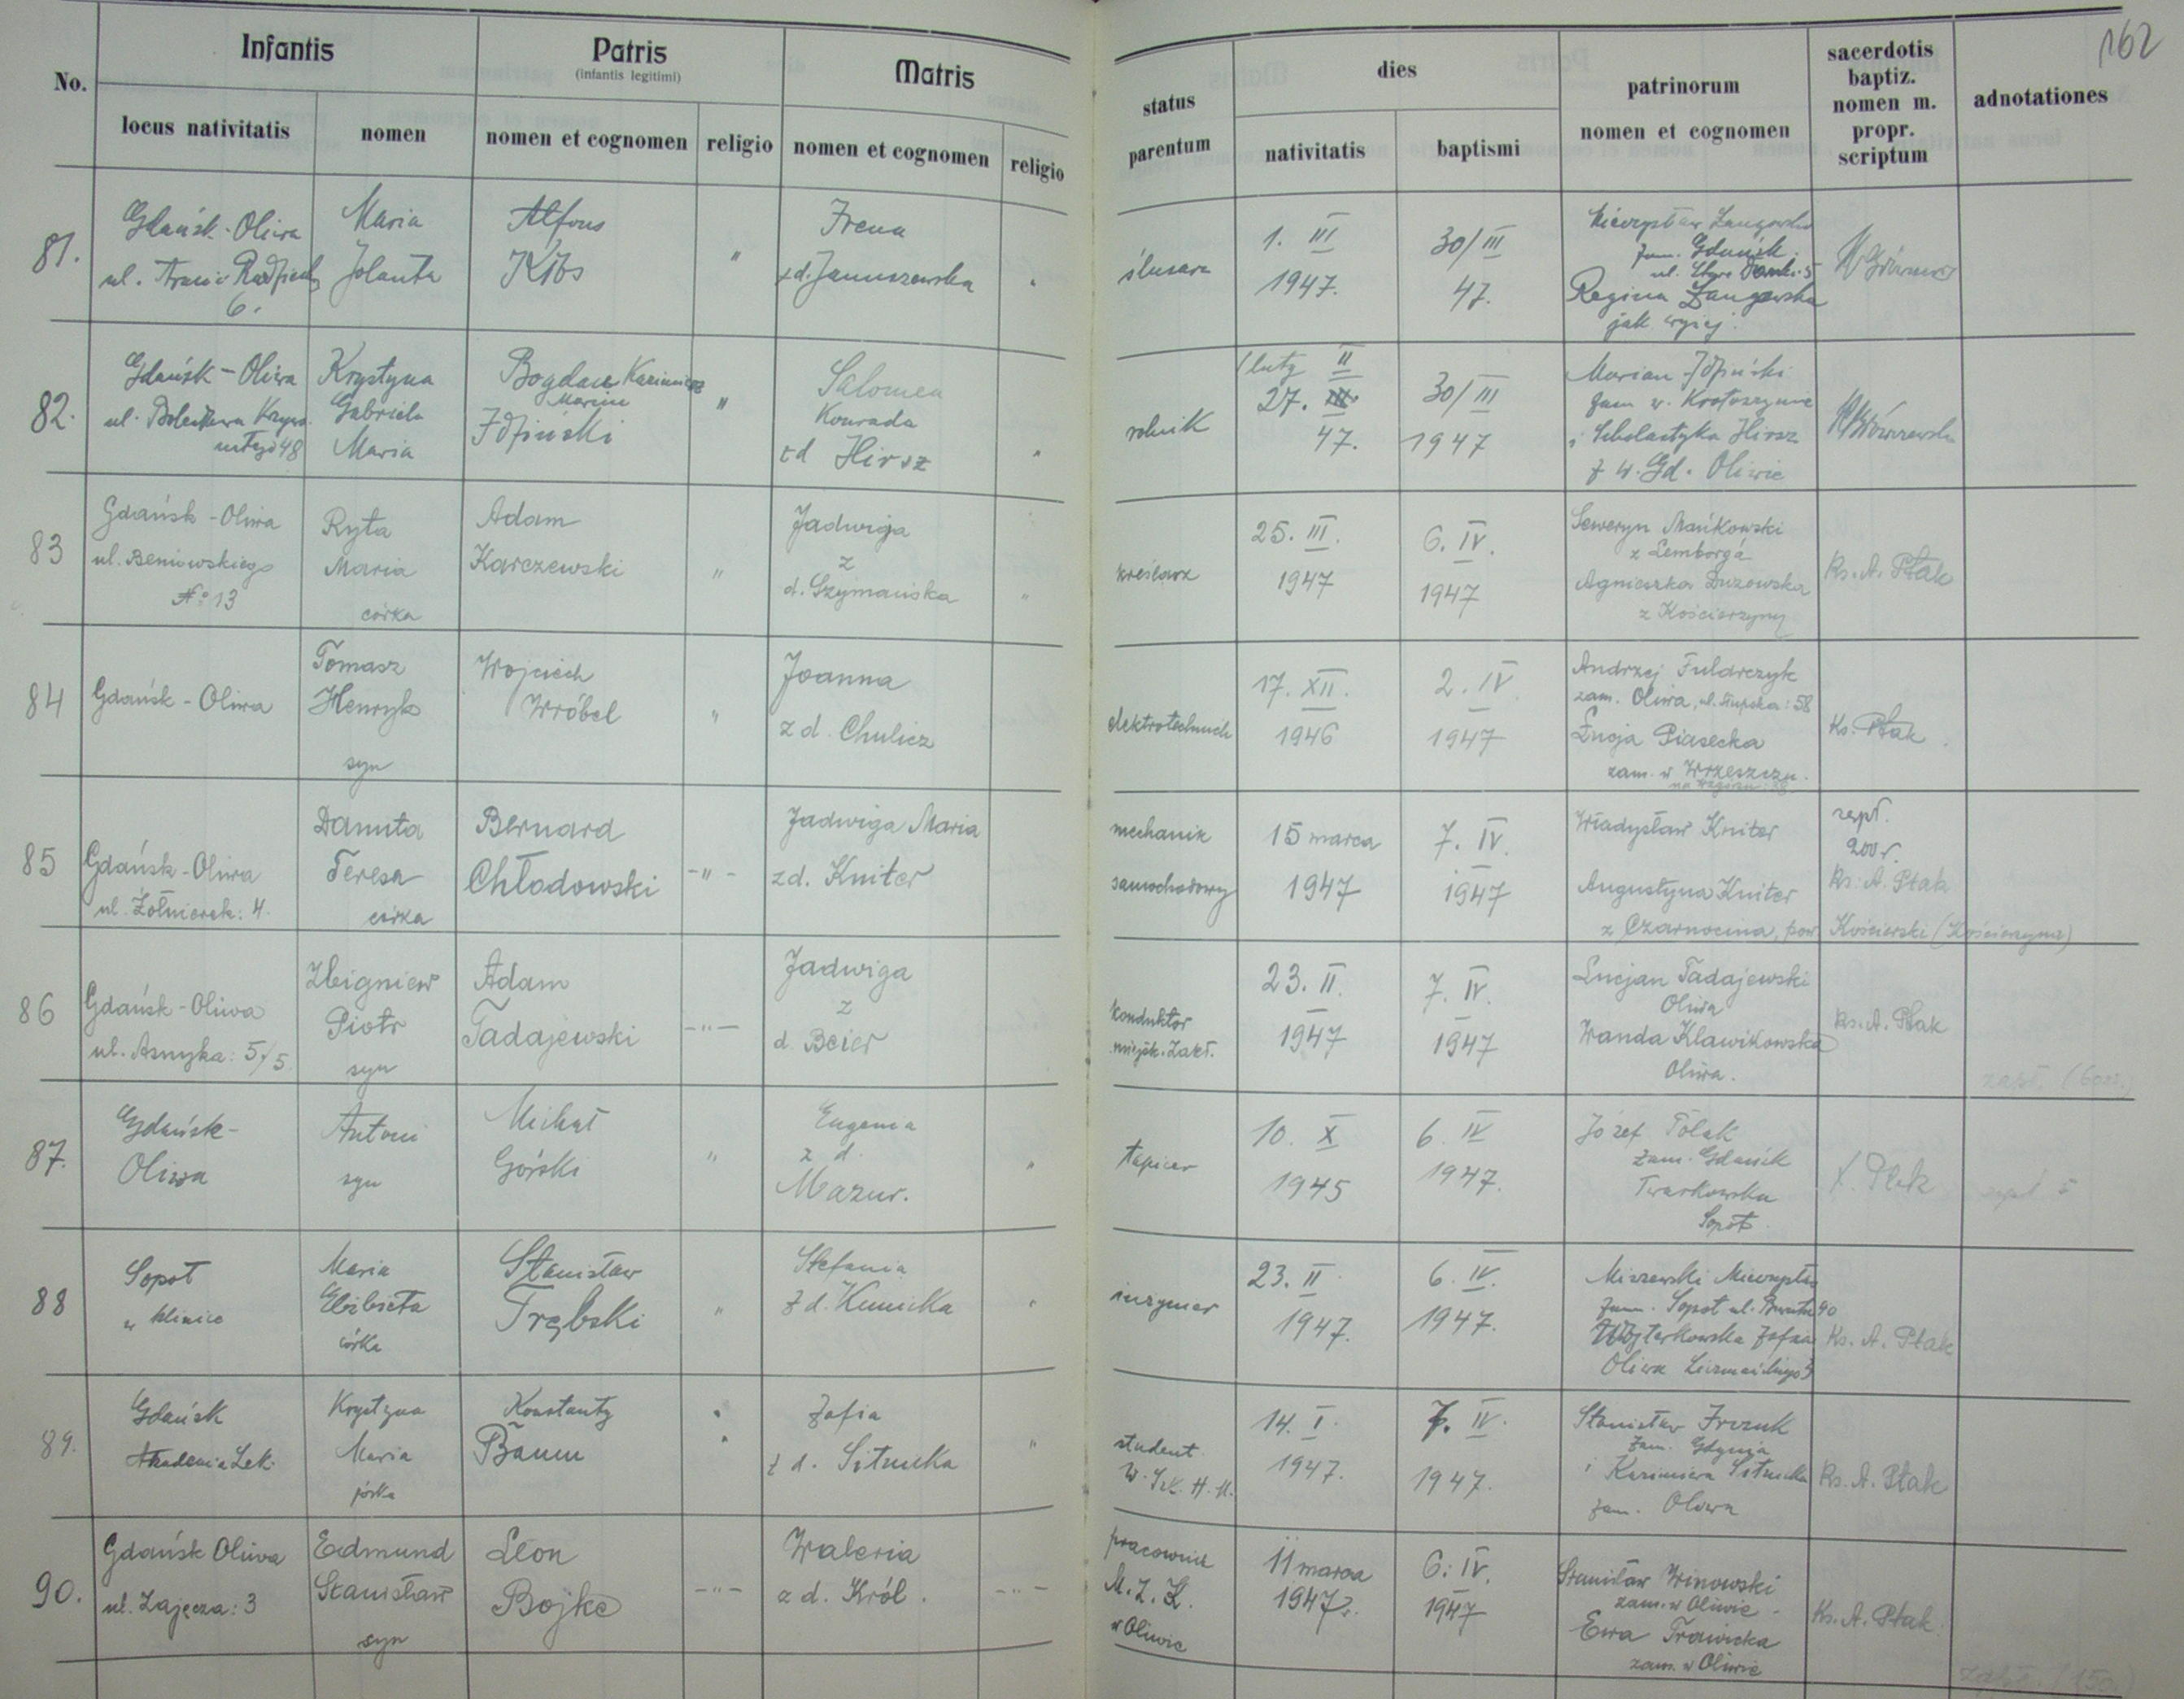 162
No.
Infantis
Patris
(infantis legitimi)
Matris
status
parentum
dies
patrinorum
nomen et cognomen
sacerdotis
baptiz.
nomen m.
propr.
scriptum
adnotationes
locus nativitatis
nomen
nomen et cognomen
religio
nomen et cognomen
religio
nativitatis
baptismi
81.
Gdańsk-Oliwa
ul.
6.
Maria
Jolanta
Alfons
"
Irena
z d. Januszewska
"
ślusarz
1. III
1947.
30/III
47.
zam. Gdańsk
ul.
Regina
jak wyżej.
82.
Gdańsk - Oliwa
ul.
48
Krystyna
Gabriela
Maria
Bogdan Kazimierz
Marian
"
Salomea
Konrada
z d Hirsz
"
rolnik
luty II
27.
47.
30/III
1947
Marian
zam w. Krotoszynie
i Scholastyka Hirsz
z w. Gd. Oliwie
83
Gdańsk - Oliwa
ul. Beniowskiego
No 13
Ryta
Maria
córka
Adam
Karczewski
"
Jadwiga
z
d. Szymańska
"
kreślarz
25. III.
1947
6. IV.
1947
Seweryn Mańkowski
z Lemborga
Agnieszka Duzowska
z Kościerzyny
Ks. A. Ptak
84
Gdańsk - Oliwa
Tomasz
Henryk
syn
Wojciech
Wróbel
"
Joanna
z d. Chulicz
elektrotechnik
17. XII.
1946
2. IV.
1947
Andrzej Fularczyk
zam. Oliwa, ul. : 58
Łucja Piasecka
zam. w Wrzeszczu.
Ks. Ptak
85
Gdańsk - Oliwa
ul. Żołniersk: 4.
Danuta
Teresa
córka
Bernard
Chłodowski
-"-
Jadwiga Maria
z d. Kniter
mechanik
samochodowy
15 marca
1947
7. IV.
1947
Władysław Kniter
Augustyna Kniter
z Czarnocina, pow. Kościerski (Kościerzyna)
zapł.
200 r.
Ks. A. Ptak
86
Gdańsk - Oliwa
ul. Asnyka: 5/5
Zbigniew
Piotr
syn
Adam
Tadajewski
-"-
Jadwiga
z
d. Beier
konduktor
miejsk. Zakł.
23. II.
1947
7. IV.
1947
Lucjan Tadajewski
Oliwa
Wanda Klawikowska
Oliwa.
Ks. A. Ptak
87.
Gdańsk-
Oliwa
Antoni
syn
Michał
Górski
"
Eugenia
z d.
Mazur.
"
tapicer
10. X
1945
6. IV
1947.
Józef Polak
zam. Gdańsk
Sopot
X. Ptak
88
Sopot
w klinice
Maria
Elżbieta
córka
Stanisław
Trębski
"
Stefania
z d. Kunicka
"
inżynier
23. II.
1947.
6. IV.
1947.
Miszewski
zam. Sopot ul. 40
Zofia
Oliwa
Ks. A. Ptak
89.
Gdańsk
Akademia Lek.
Krystyna
Maria
córka
Konstanty
Baum
"
Zofia
z d. Sitnicka
"
student
W. Szk. H. M.
14. I.
1947.
7. IV.
1947.
Stanisław
zam. Gdynia
i Kazimiera Sitnicka
zam. Oliwa
Ks. A. Ptak
90.
Gdańsk Oliwa
ul. Zajęcza: 3
Edmund
Stanisław
syn
Leon
Bojke
-"-
Waleria
z d. Król.
-"-
pracownik
M. Z. K.
w Oliwie
11 marca
1947r.
6. IV.
1947
Stanisław Winowski
zam. w Oliwie.
Ewa Trawicka
zam. w Oliwie
Ks. A. Ptak.